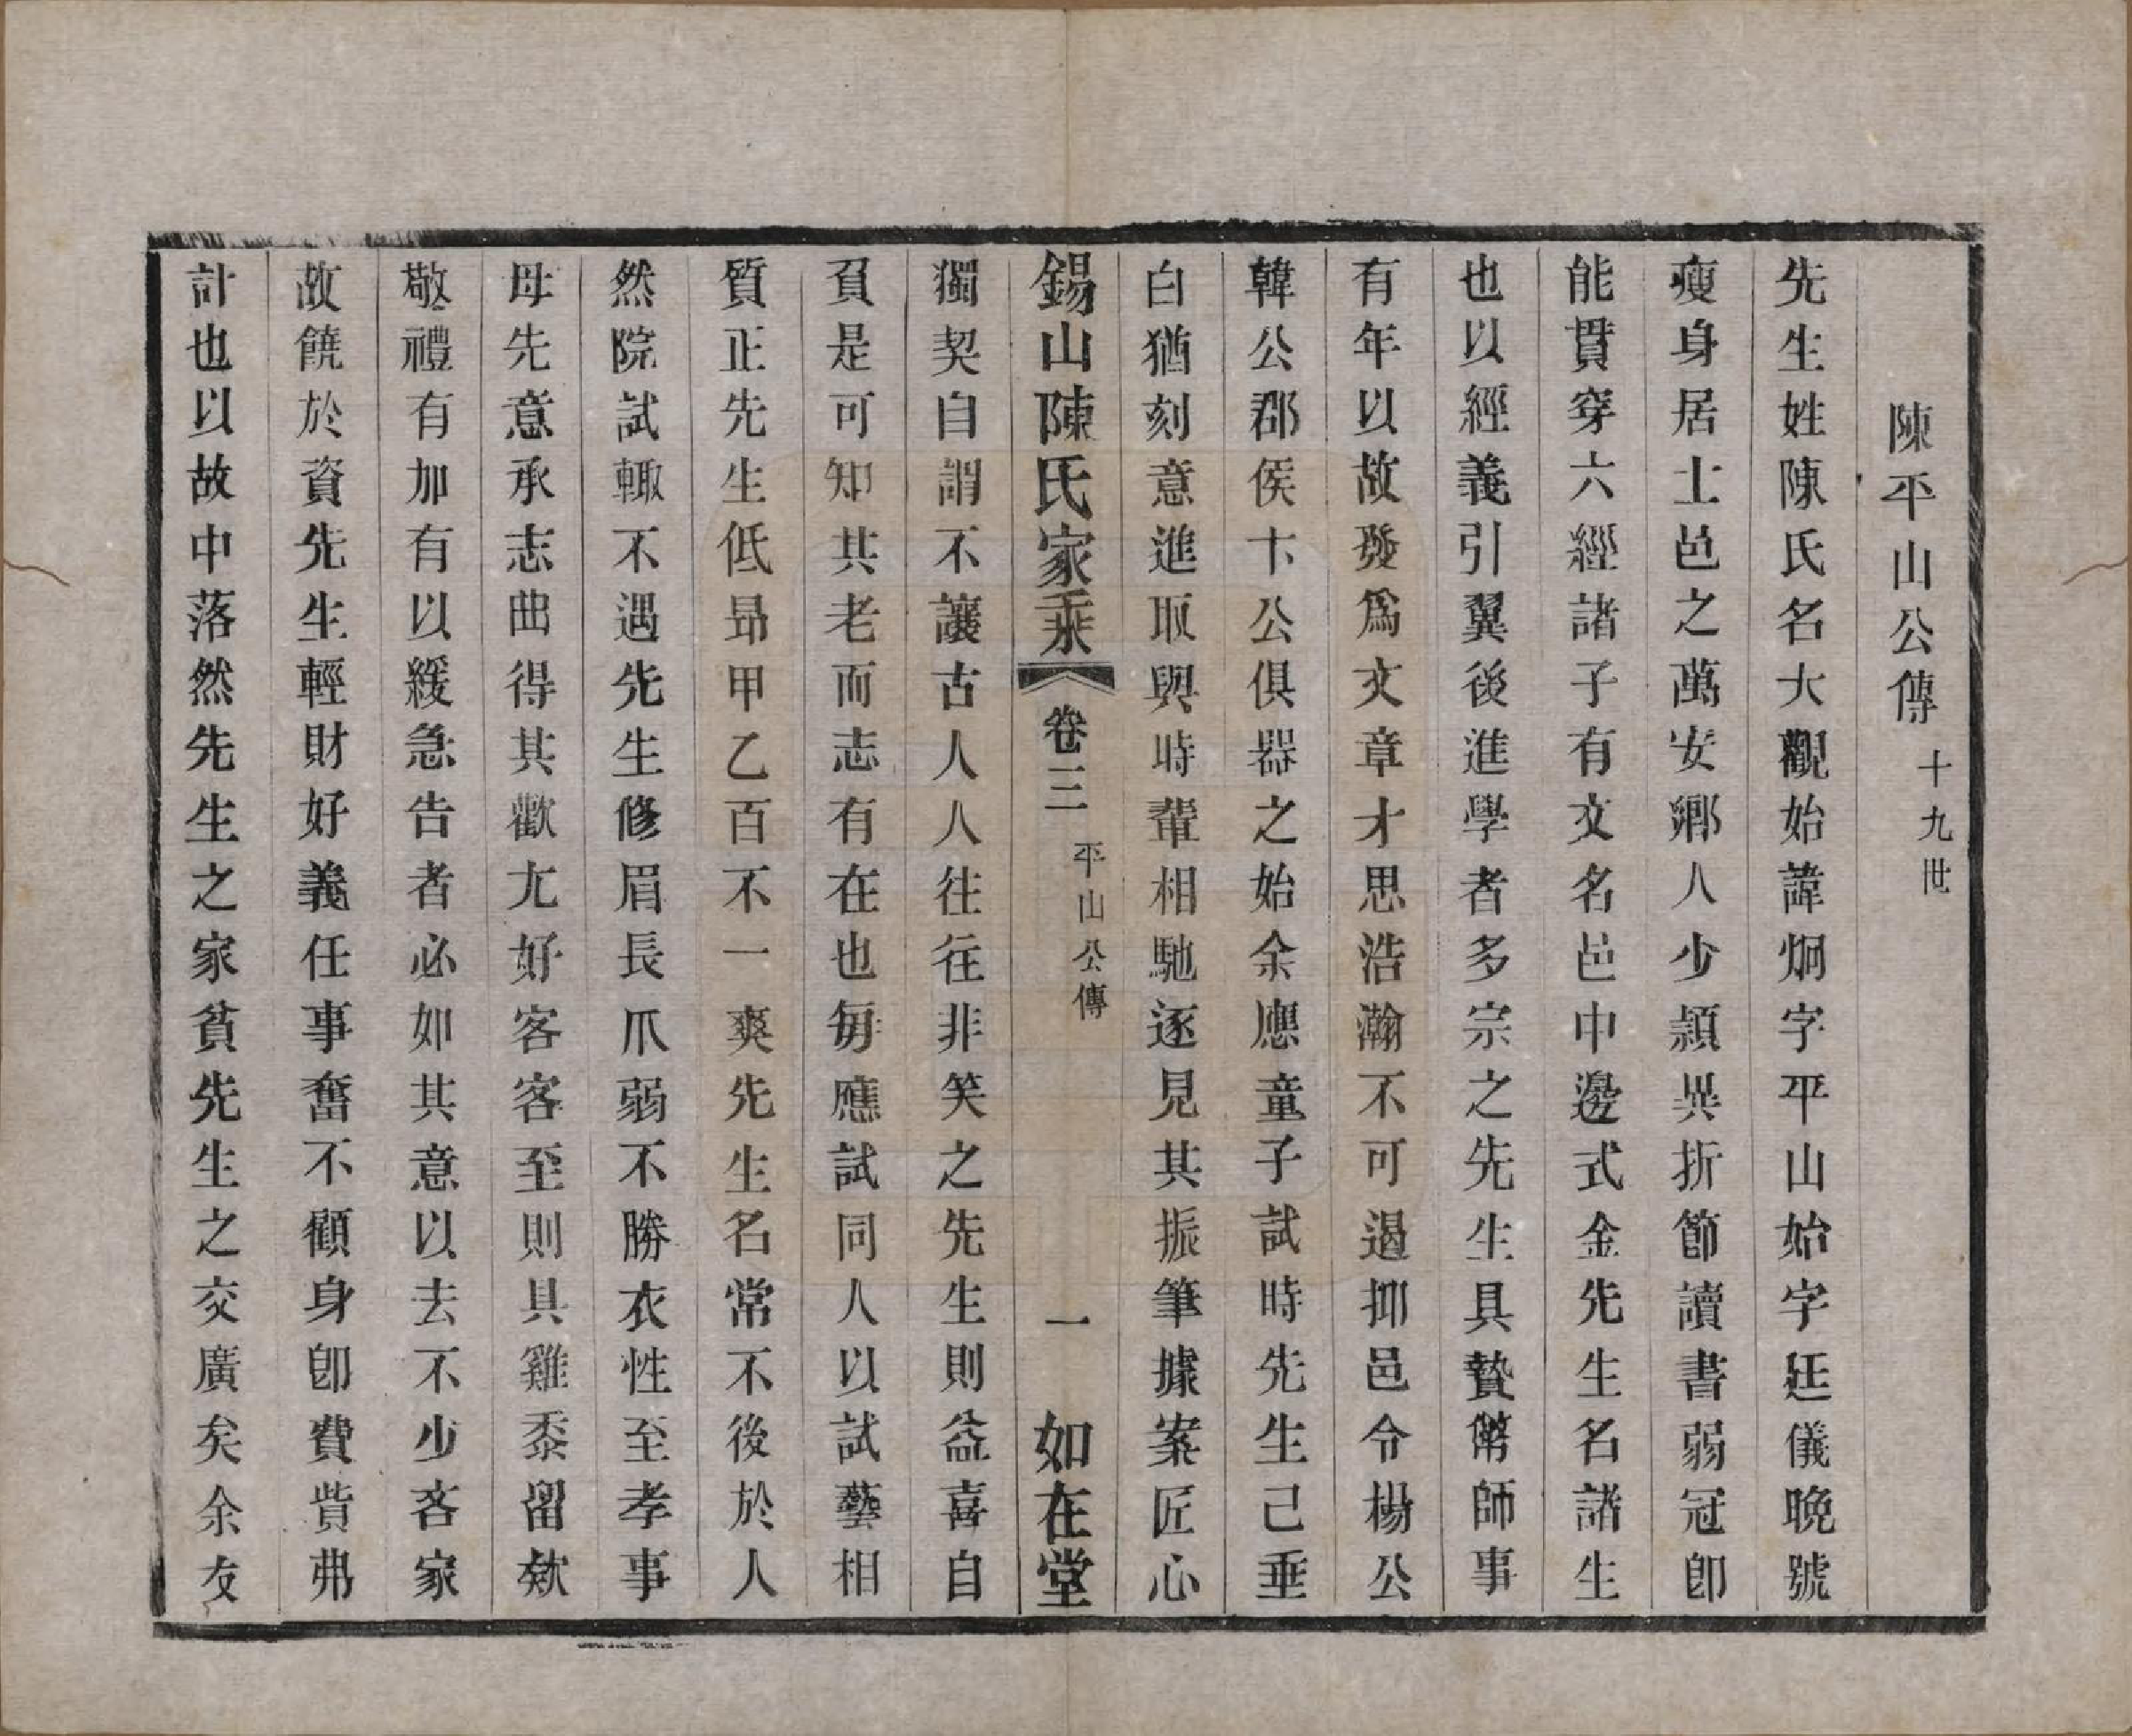 陳平山公傳 十九世
先生姓陳氏名大觀始諱炯字平山始字廷儀晚號
瘦身居士邑之萬安鄉人少穎異折節讀書弱冠卽
能貫穿六經諸子有文名邑中邊式金先生名諸生
也以經義引翼後進學者多宗之先生具贄幣師事
有年以故發爲文章才思浩瀚不可遏抑邑令楊公
韓公郡侯卞公俱器之始余應童子試時先生已垂
白猶刻意進取與時輩相馳逐見其振筆據案匠心
錫山陳氏家乘 卷三 平山公傳 一 如在堂
獨契自謂不讓古人人往往非笑之先生則益喜自
負是可知其老而志有在也每應試同人以試藝相
質正先生低昻甲乙百不一爽先生名常不後於人
然院試輙不遇先生修眉長爪弱不勝衣性至孝事
母先意承志曲得其歡尤好客客至則具雞黍畱欵
敬禮有加有以緩急告者必如其意以去不少吝家
故饒於資先生輕財好義任事奮不顧身卽費貲弗
計也以故中落然先生之家貧先生之交廣矣余友